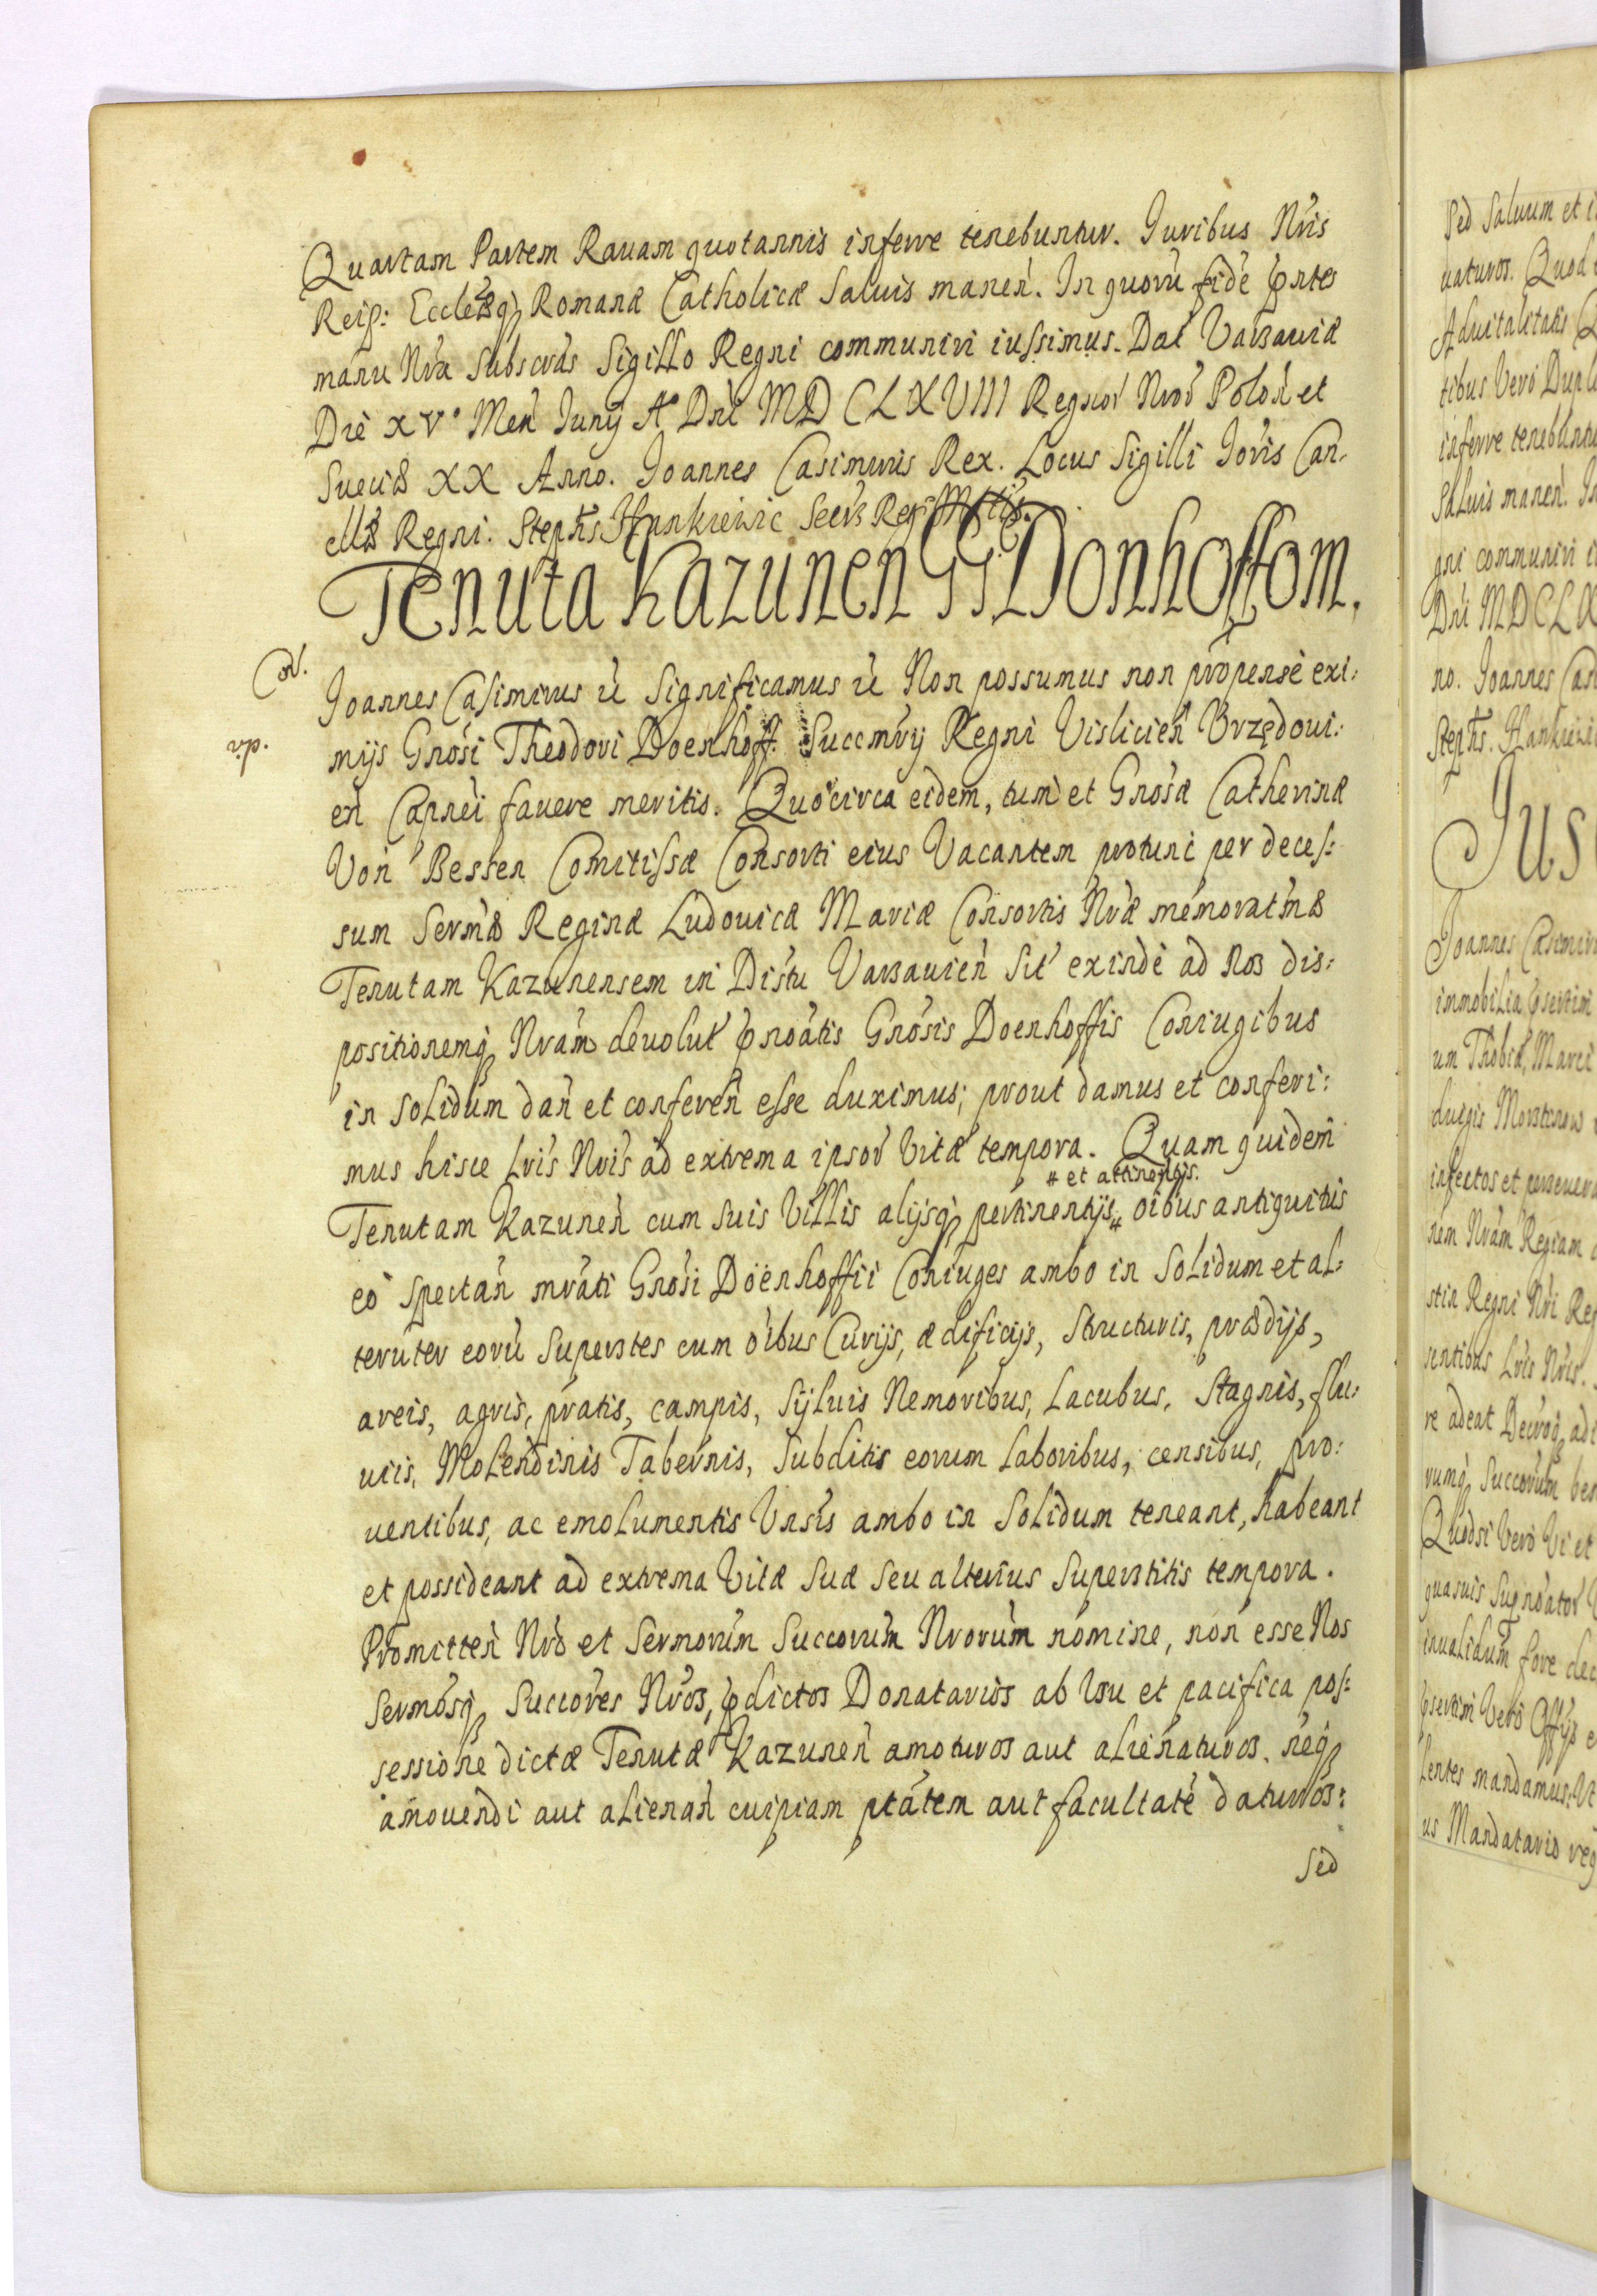 Quartam Partem Rauam quotannis inferre tenebuntur. Iuribus Nris
Reip: Ecclesq Romanæ Catholicæ Saluis manen. In quoru fide pntes
manu Nra Subscras Sigillo Regni communiri iussimus. Dat Varsauiæ
Die XV° Men Iunij A° Dni MDCLXVIII Regnor Nror Polon et
Sueciæ XX Anno. Joannes Casimirus Rex. Locus Sigilli Ioris Can-
cellæ Regni. Stephs Hankiewic Secrs Regiæ Mttis.
Tenuta Kazunen GG Donhoffom.
Cor.
vp.
Joannes Casimirus &c Significamus &c Non possumus non propense exi:
mijs Gnosi Theodori Doenhoff. Succmrij Regni Vislicien Vrzędoui:
en Capnei fauere meritis. Quocirca eidem, tum et Gnosæ Catherinæ
Von Bessen Comitissæ Consorti eius Vacantem protunc per deces:
sum Sermæ Reginæ Ludouicæ Mariæ Consortis Nræ memoratmæ
Tenutam Kazunensem in Distu Varsauien Sit exinde ad Nos dis:
positionemq Nram deuolut pnoatis Gnosis Doenhoffis Coniugibus
in Solidum dan et conferen esse duximus; prout damus et conferi:
mus hisce Lris Nris ad extrema ipsor Vitæ tempora. Quam quidem
# et attinentijs.
Tenutam Kazunen cum suis Villis alijsq pertinentijs # oibus antiquitis
eo Spectan mrati Gnosi Döenhoffii Coniuges ambo in Solidum et al:
teruter eoru Superstes cum oibus Curijs, ædificijs, Structuris, prædijs,
areis, agris, pratis, campis, Syluis Nemoribus, Lacubus, Stagnis, flu:
uiis, Molendinis Tabernis, Subditis eorum Laboribus, censibus, pro:
uentibus, ac emolumentis Vnsis ambo in Solidum teneant, habeant
et possideant ad extrema Vitæ Suæ Seu alterius Superstitis tempora.
Promitten Nro et Sermorum Succorum Nrorum nomine, non esse Nos
Sermosq Succores Nros, pdictos Donatarios ab Vsu et pacifica pos:
sessione dictæ Tenutæ Kazunen amoturos aut alienaturos. neq
amouendi aut alienan cuipiam ptatem aut facultate daturos:
Sed
Sed Saluum et i
uaturos. Quod
Aduitalitatis
tibus Vero Dupl
inferre tenebuntu
Saluis manen. In
gni communiri i
Dni MDCLX
no. Joannes Cas
Stephs. Hankiewi
Jus
Joannes Casimir
immobilia psertim
um Thobiæ, Marci
duigis Morstenow
infectos et perseuera
nem Nram Regiam
stia Regni Nri Reg
sentibus Lris Nris.
re adeat Decroq adi
rumq Succorum ben
Quodsi Vero Vi et
quasuis Supnoator
inualidum fore dec
psertim Vero Offijs e
lentes mandamus: Vt
us Mandatario reg